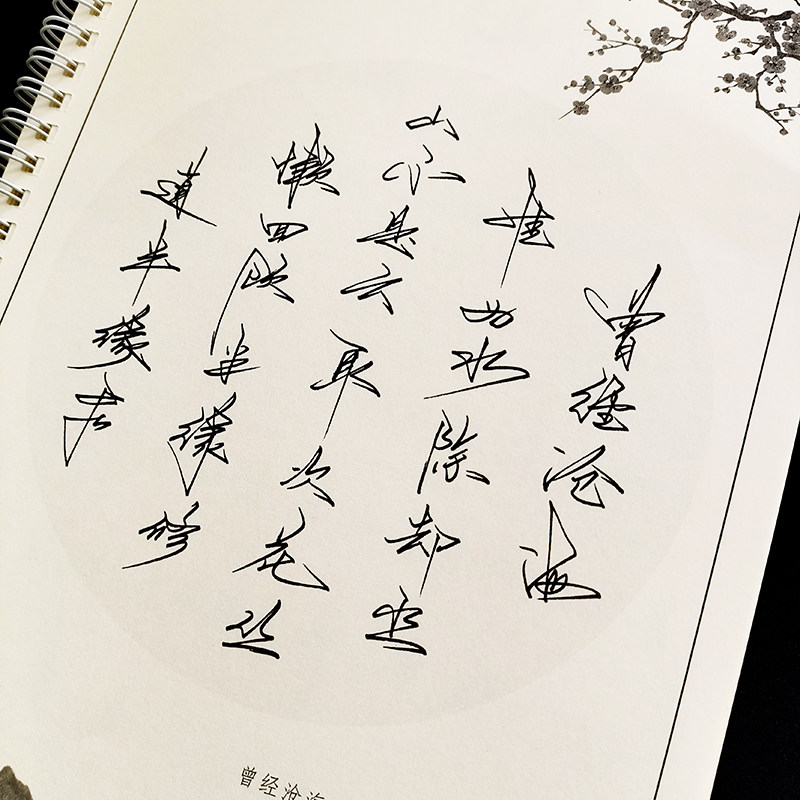 曾经沧海
难为水除却巫
山不是云取次花丛
懒回顾半缘修
道半缘君
曾经沧海